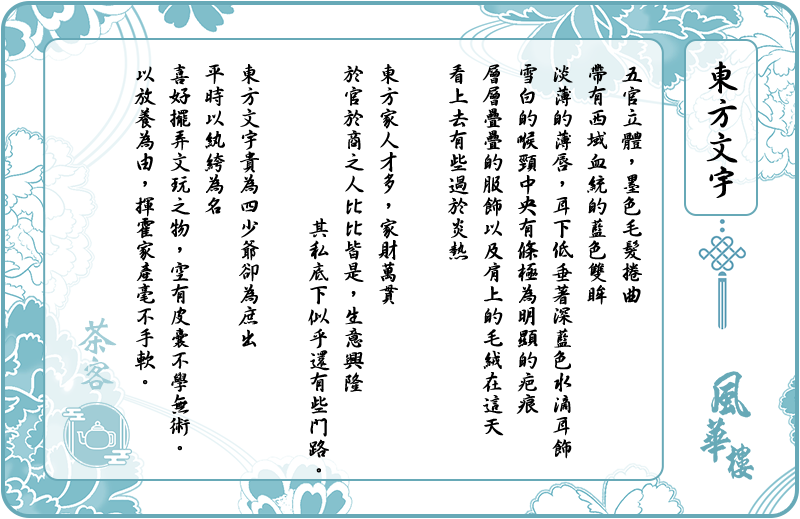 東方文宇
風華樓
五官立體，墨色毛髮捲曲
帶有西域血統的藍色雙眸
淡薄的薄唇，耳下低垂著深藍色水滴耳飾
雪白的喉頸中央有條極為明顯的疤痕
層層疊疊的服飾以及肩上的毛絨在這天
看上去有些過於炎熱
東方家人才多，家財萬貫
於官於商之人比比皆是，生意興隆
其私底下似乎還有些門路。
東方文宇貴為四少爺卻為庶出
平時以紈絝為名
喜好擺弄文玩之物，空有皮囊不學無術。
以放養為由，揮霍家產毫不手軟。
茶客